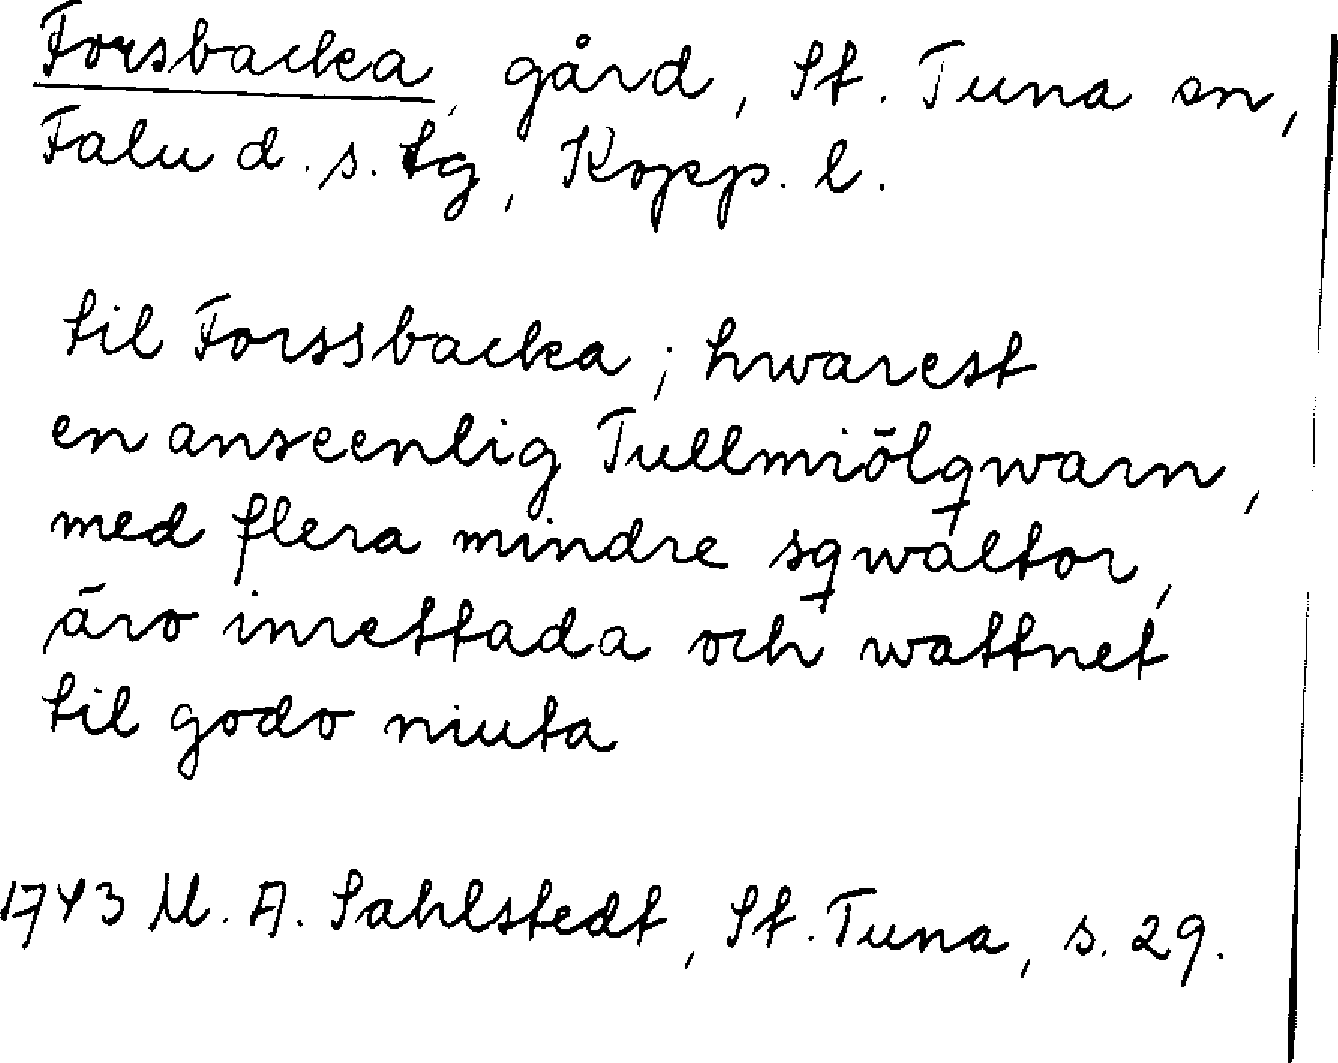 Forsbacka, gård, St. Tuna sn,
Falu d. s. tg, Kopp. l.
til Forssbacka; hwarest
en anseenlig Tullmiölqwarn,
med flera mindre sqwaltor,
äro inrettada och wattnet
til godo niuta
1743 M. A. Sahlstedt, St. Tuna, s. 29.